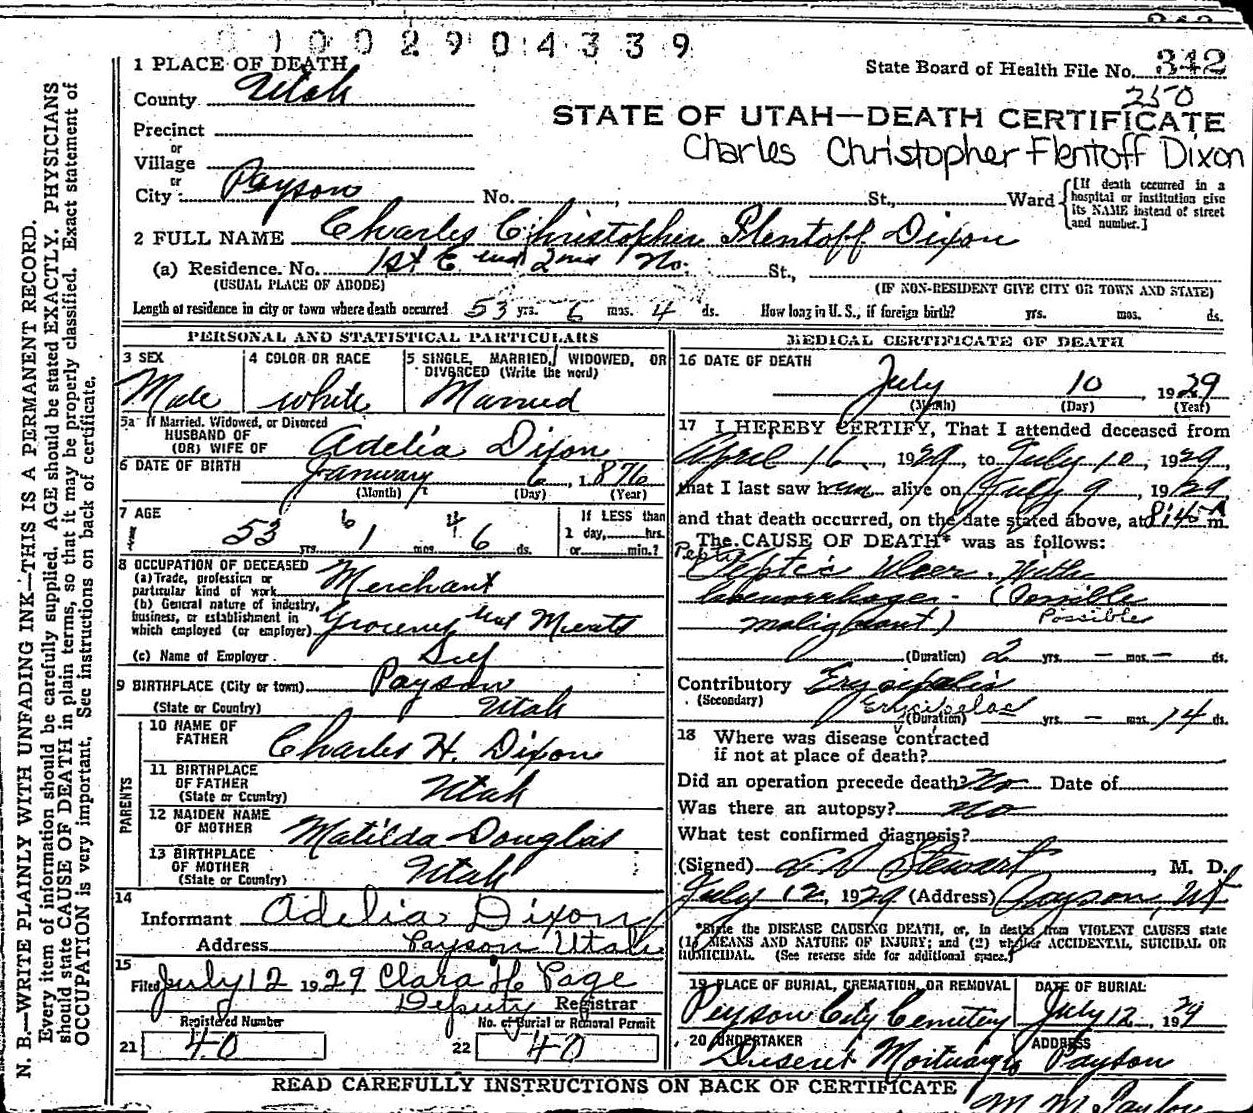 01002904339
1 PLACE OF DEATH
State Board of Health File No. 342
250
County Utah
STATE OF UTAH—DEATH CERTIFICATE
Precinct
Charles Christopher Flentoff Dixon
or
Village
or
City Payson No. , St., Ward
[If death occurred in a
hospital or institution give
its NAME instead of street
and number.]
2 FULL NAME Charles Christopher Flentoff Dixon
(a) Residence. No. 1st E and 2nd No. St.,
(USUAL PLACE OF ABODE) (IF NON-RESIDENT GIVE CITY OR TOWN AND STATE)
Length of residence in city or town where death occurred 53 yrs. 6 mos. 4 ds. How long in U. S., if foreign birth? yrs. mos. ds.
PERSONAL AND STATISTICAL PARTICULARS
3 SEX
Male
4 COLOR OR RACE
white
5 SINGLE, MARRIED, WIDOWED, OR
DIVORCED (Write the word)
Married
5a If Married, Widowed, or Divorced
HUSBAND OF
(OR) WIFE OF Adelia Dixon
6 DATE OF BIRTH January 6, 1876
(Month) (Day) (Year)
7 AGE
53 yrs. 6 1 mos. 4 6 ds.
If LESS than
1 day, hrs.
or min.?
8 OCCUPATION OF DECEASED
(a) Trade, profession or
particular kind of work Merchant
(b) General nature of industry,
business, or establishment in
which employed (or employer) Grocery and Meats
(c) Name of Employer Self
9 BIRTHPLACE (City or town) Payson
(State or Country) Utah
PARENTS
10 NAME OF
FATHER Charles H. Dixon
11 BIRTHPLACE
OF FATHER
(State or Country) Utah
12 MAIDEN NAME
OF MOTHER Matilda Douglas
13 BIRTHPLACE
OF MOTHER
(State or Country) Utah
14
Informant Adelia Dixon
Address Payson Utah
15
Filed July 12 1929 Clara H Page
Deputy Registrar
Registered Number
21 40
No. of Burial or Removal Permit
22 40
MEDICAL CERTIFICATE OF DEATH
16 DATE OF DEATH
July 10, 1929
(Month) (Day) (Year)
17 I HEREBY CERTIFY, That I attended deceased from
April 16, 1929, to July 10, 1929,
that I last saw him alive on July 9, 1929
and that death occurred, on the date stated above, at 8:45 A m.
The CAUSE OF DEATH* was as follows:
Peptic
Peptic Ulcer. With
haemorrhages - (Possible
malignant) Possible
(Duration) 2 yrs. — mos. — ds.
Contributory Erysipelis
(Secondary) Erysipelas
(Duration) yrs. — mos. 14 ds.
18 Where was disease contracted
if not at place of death?
Did an operation precede death? No Date of
Was there an autopsy? No
What test confirmed diagnosis?
(Signed) Stewart, M. D.
July 12, 1929 (Address) Payson, Ut
*State the DISEASE CAUSING DEATH, or, in deaths from VIOLENT CAUSES state
(1) MEANS AND NATURE OF INJURY; and (2) whether ACCIDENTAL, SUICIDAL OR
HOMICIDAL. (See reverse side for additional space.)
19 PLACE OF BURIAL, CREMATION, OR REMOVAL
Payson City Cemetery
DATE OF BURIAL
July 12, 1929
20 UNDERTAKER
Deseret Mortuary
ADDRESS
Payson
READ CAREFULLY INSTRUCTIONS ON BACK OF CERTIFICATE
N. B.—WRITE PLAINLY WITH UNFADING INK—THIS IS A PERMANENT RECORD.
Every item of information should be carefully supplied. AGE should be stated EXACTLY. PHYSICIANS
should state CAUSE OF DEATH in plain terms, so that it may be properly classified. Exact statement of
OCCUPATION is very important. See instructions on back of certificate.